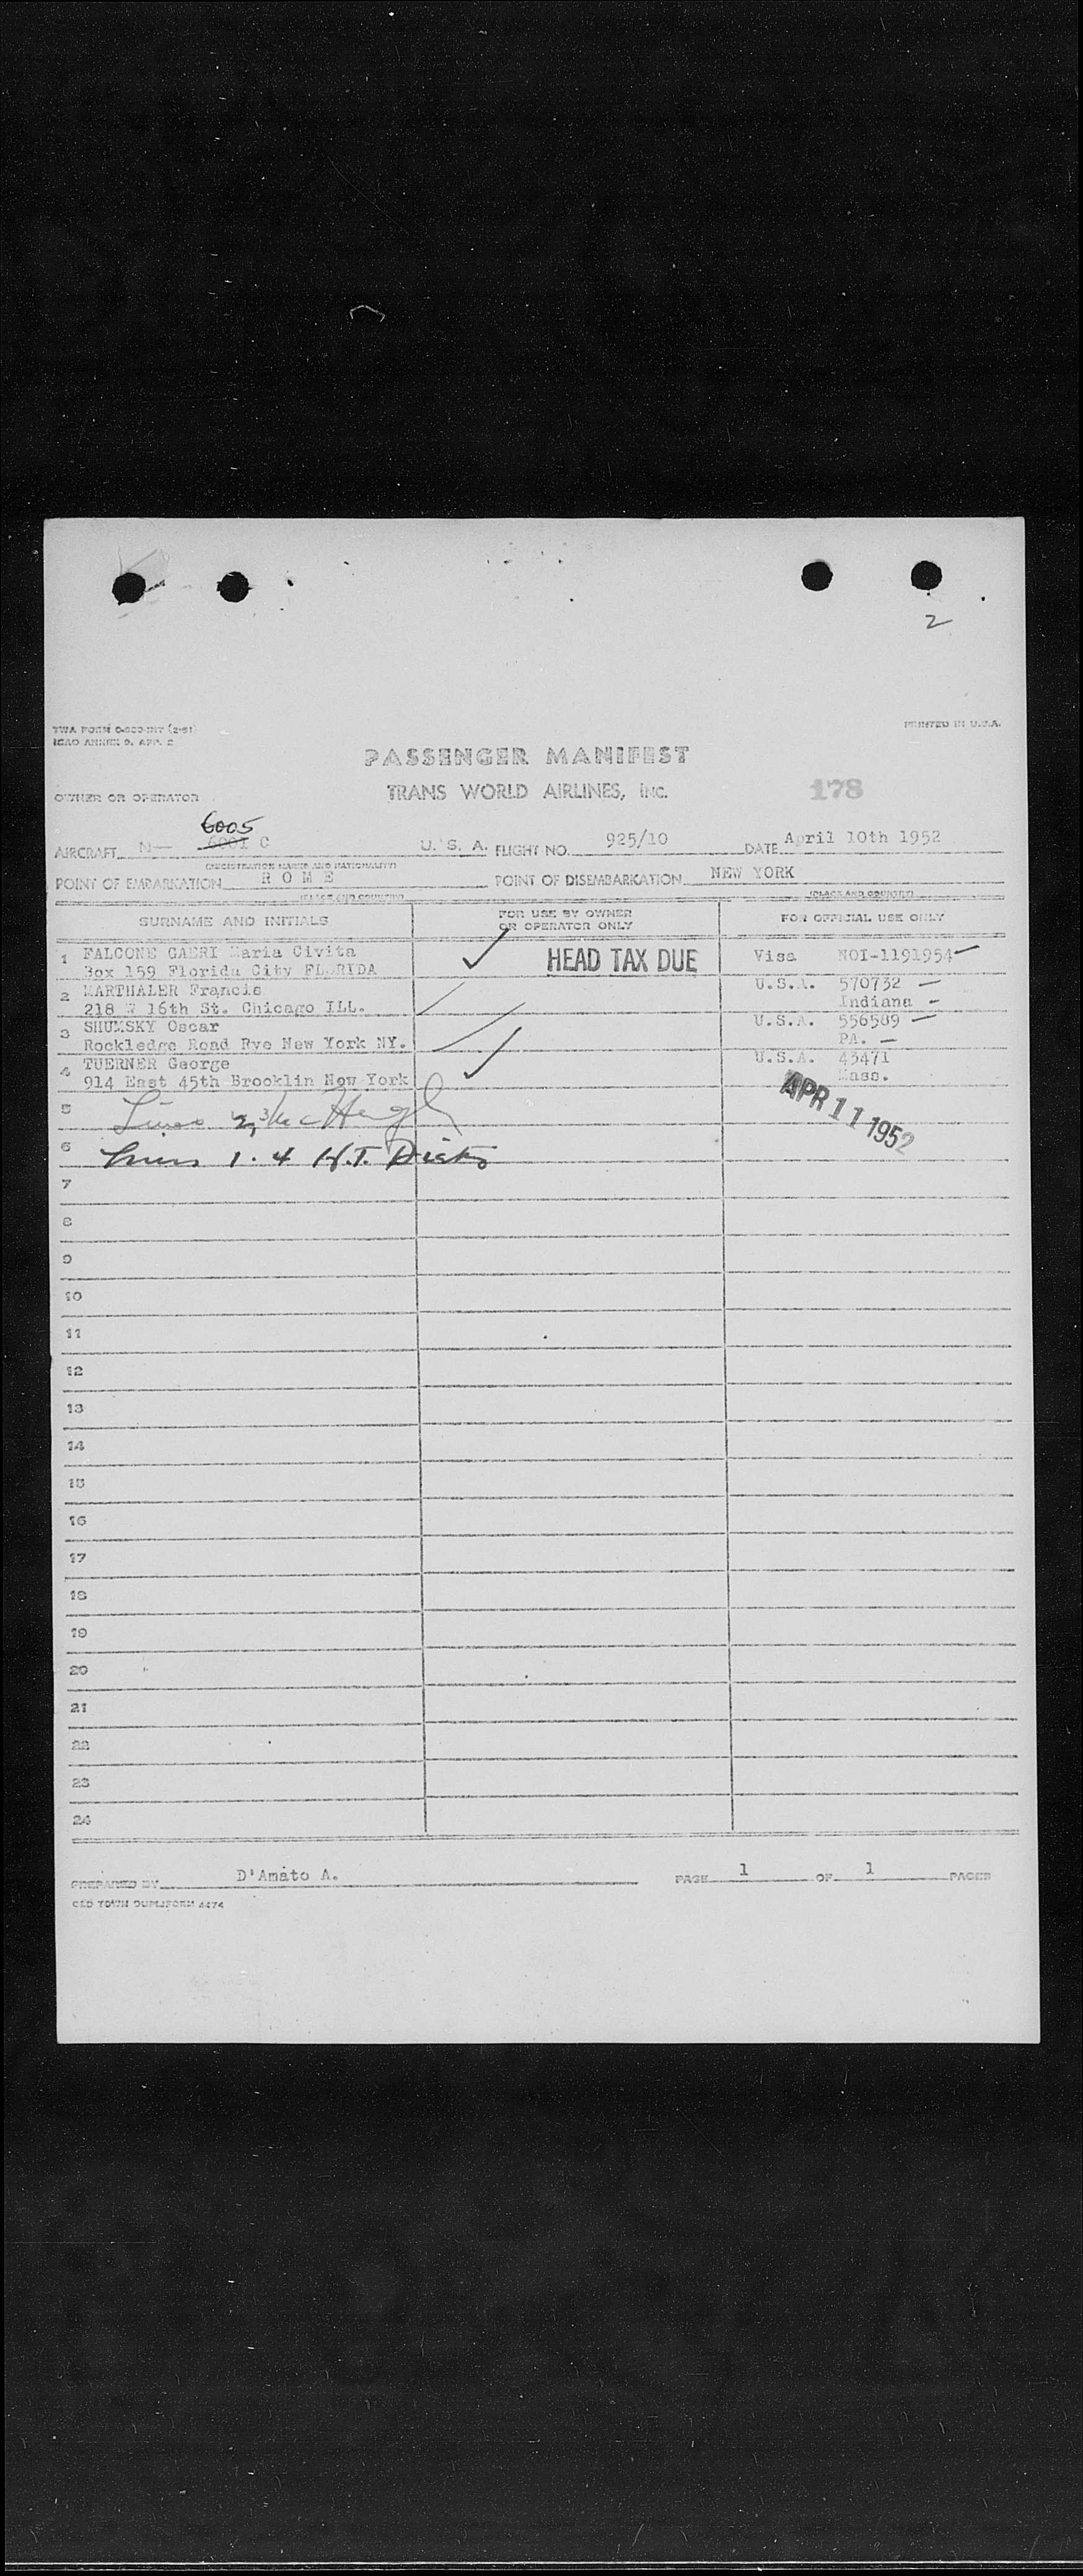 2
TWA FORM O-800-INT (2-51)
ICAO ANNEX 9, APP. 2
PRINTED IN U.S.A.
PASSENGER MANIFEST
TRANS WORLD AIRLINES, INC.
178
OWNER OR OPERATOR
6005
AIRCRAFT N— 6001 C U. S. A. FLIGHT NO. 925/10 DATE April 10th 1952
(REGISTRATION MARKS AND NATIONALITY)
POINT OF EMBARKATION R O M E POINT OF DISEMBARKATION NEW YORK
(PLACE AND COUNTRY) (PLACE AND COUNTRY)
SURNAME AND INITIALS FOR USE BY OWNER OR OPERATOR ONLY FOR OFFICIAL USE ONLY
1 FALCONE Maria Civita HEAD TAX DUE Visa NOI-1191954
Box 159 Florida City FLORIDA
2 MARTHALER Francis U.S.A. 570732
218 W 16th St. Chicago ILL. Indiana
3 SHUMSKY Oscar U.S.A. 556589
Rockledge Road Rye New York NY. PA.
4 TUERNER George U.S.A. 43471
914 East 45th Brocklin New York Mass.
APR 11 1952
5 Lines 2, 3
6 Lines 1. 4 H.T.
7
8
9
10
11
12
13
14
15
16
17
18
19
20
21
22
23
24
PREPARED BY D'Amato A. PAGE 1 OF 1 PAGES
OLD TOWN DUPLIFORM 4474